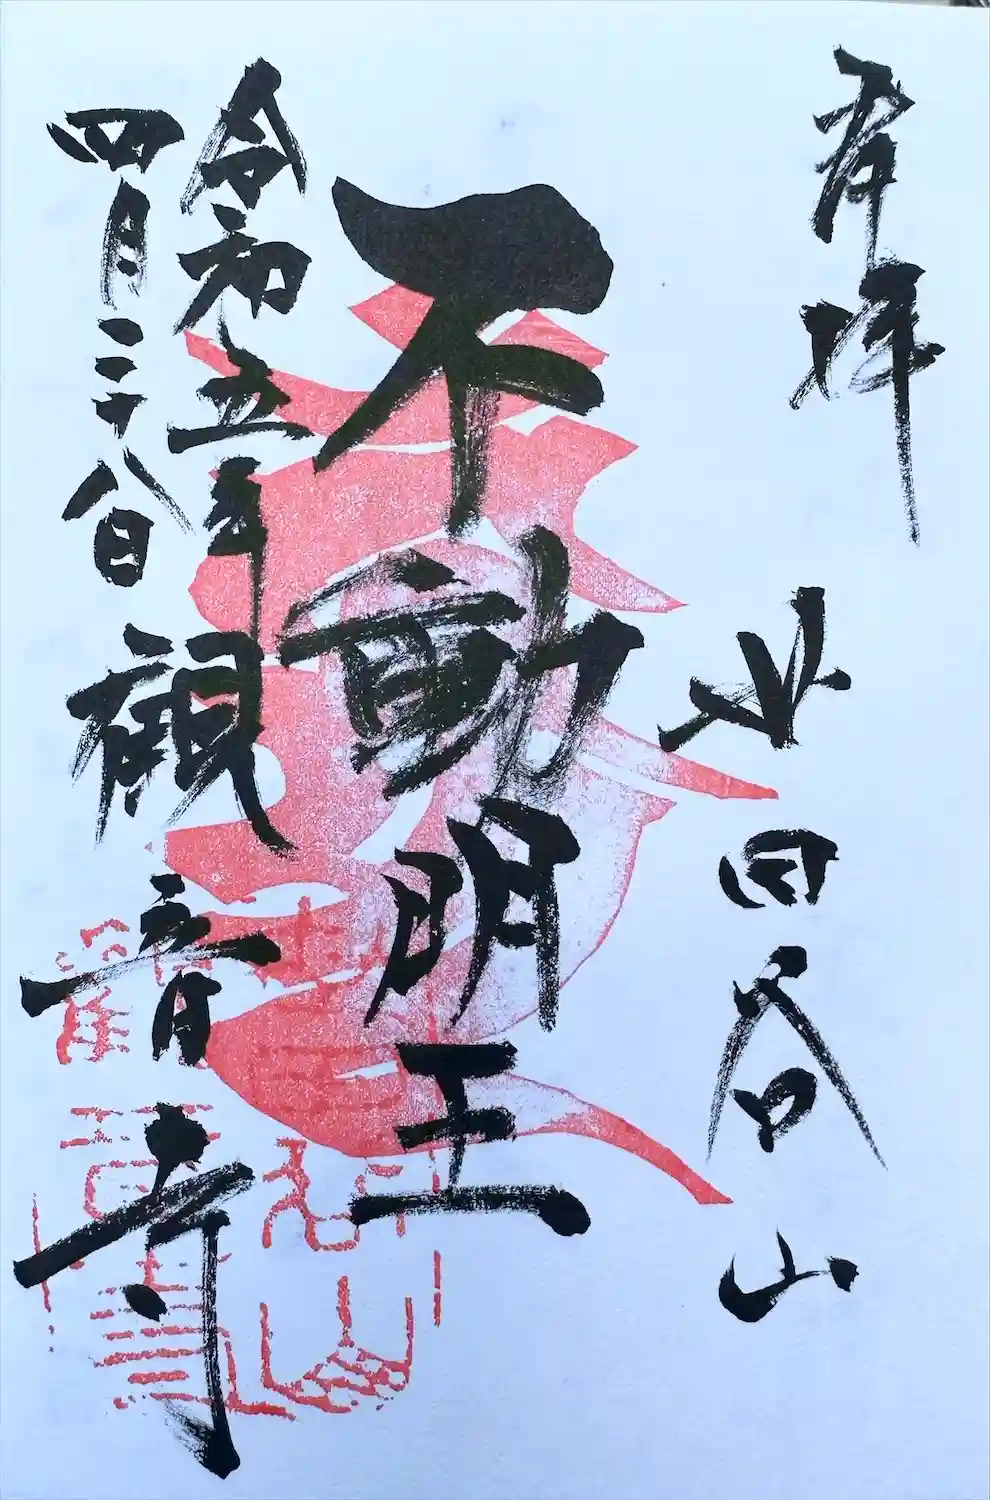 奉拝
北日谷山
不動明王
令和五年
四月二十八日
観音寺